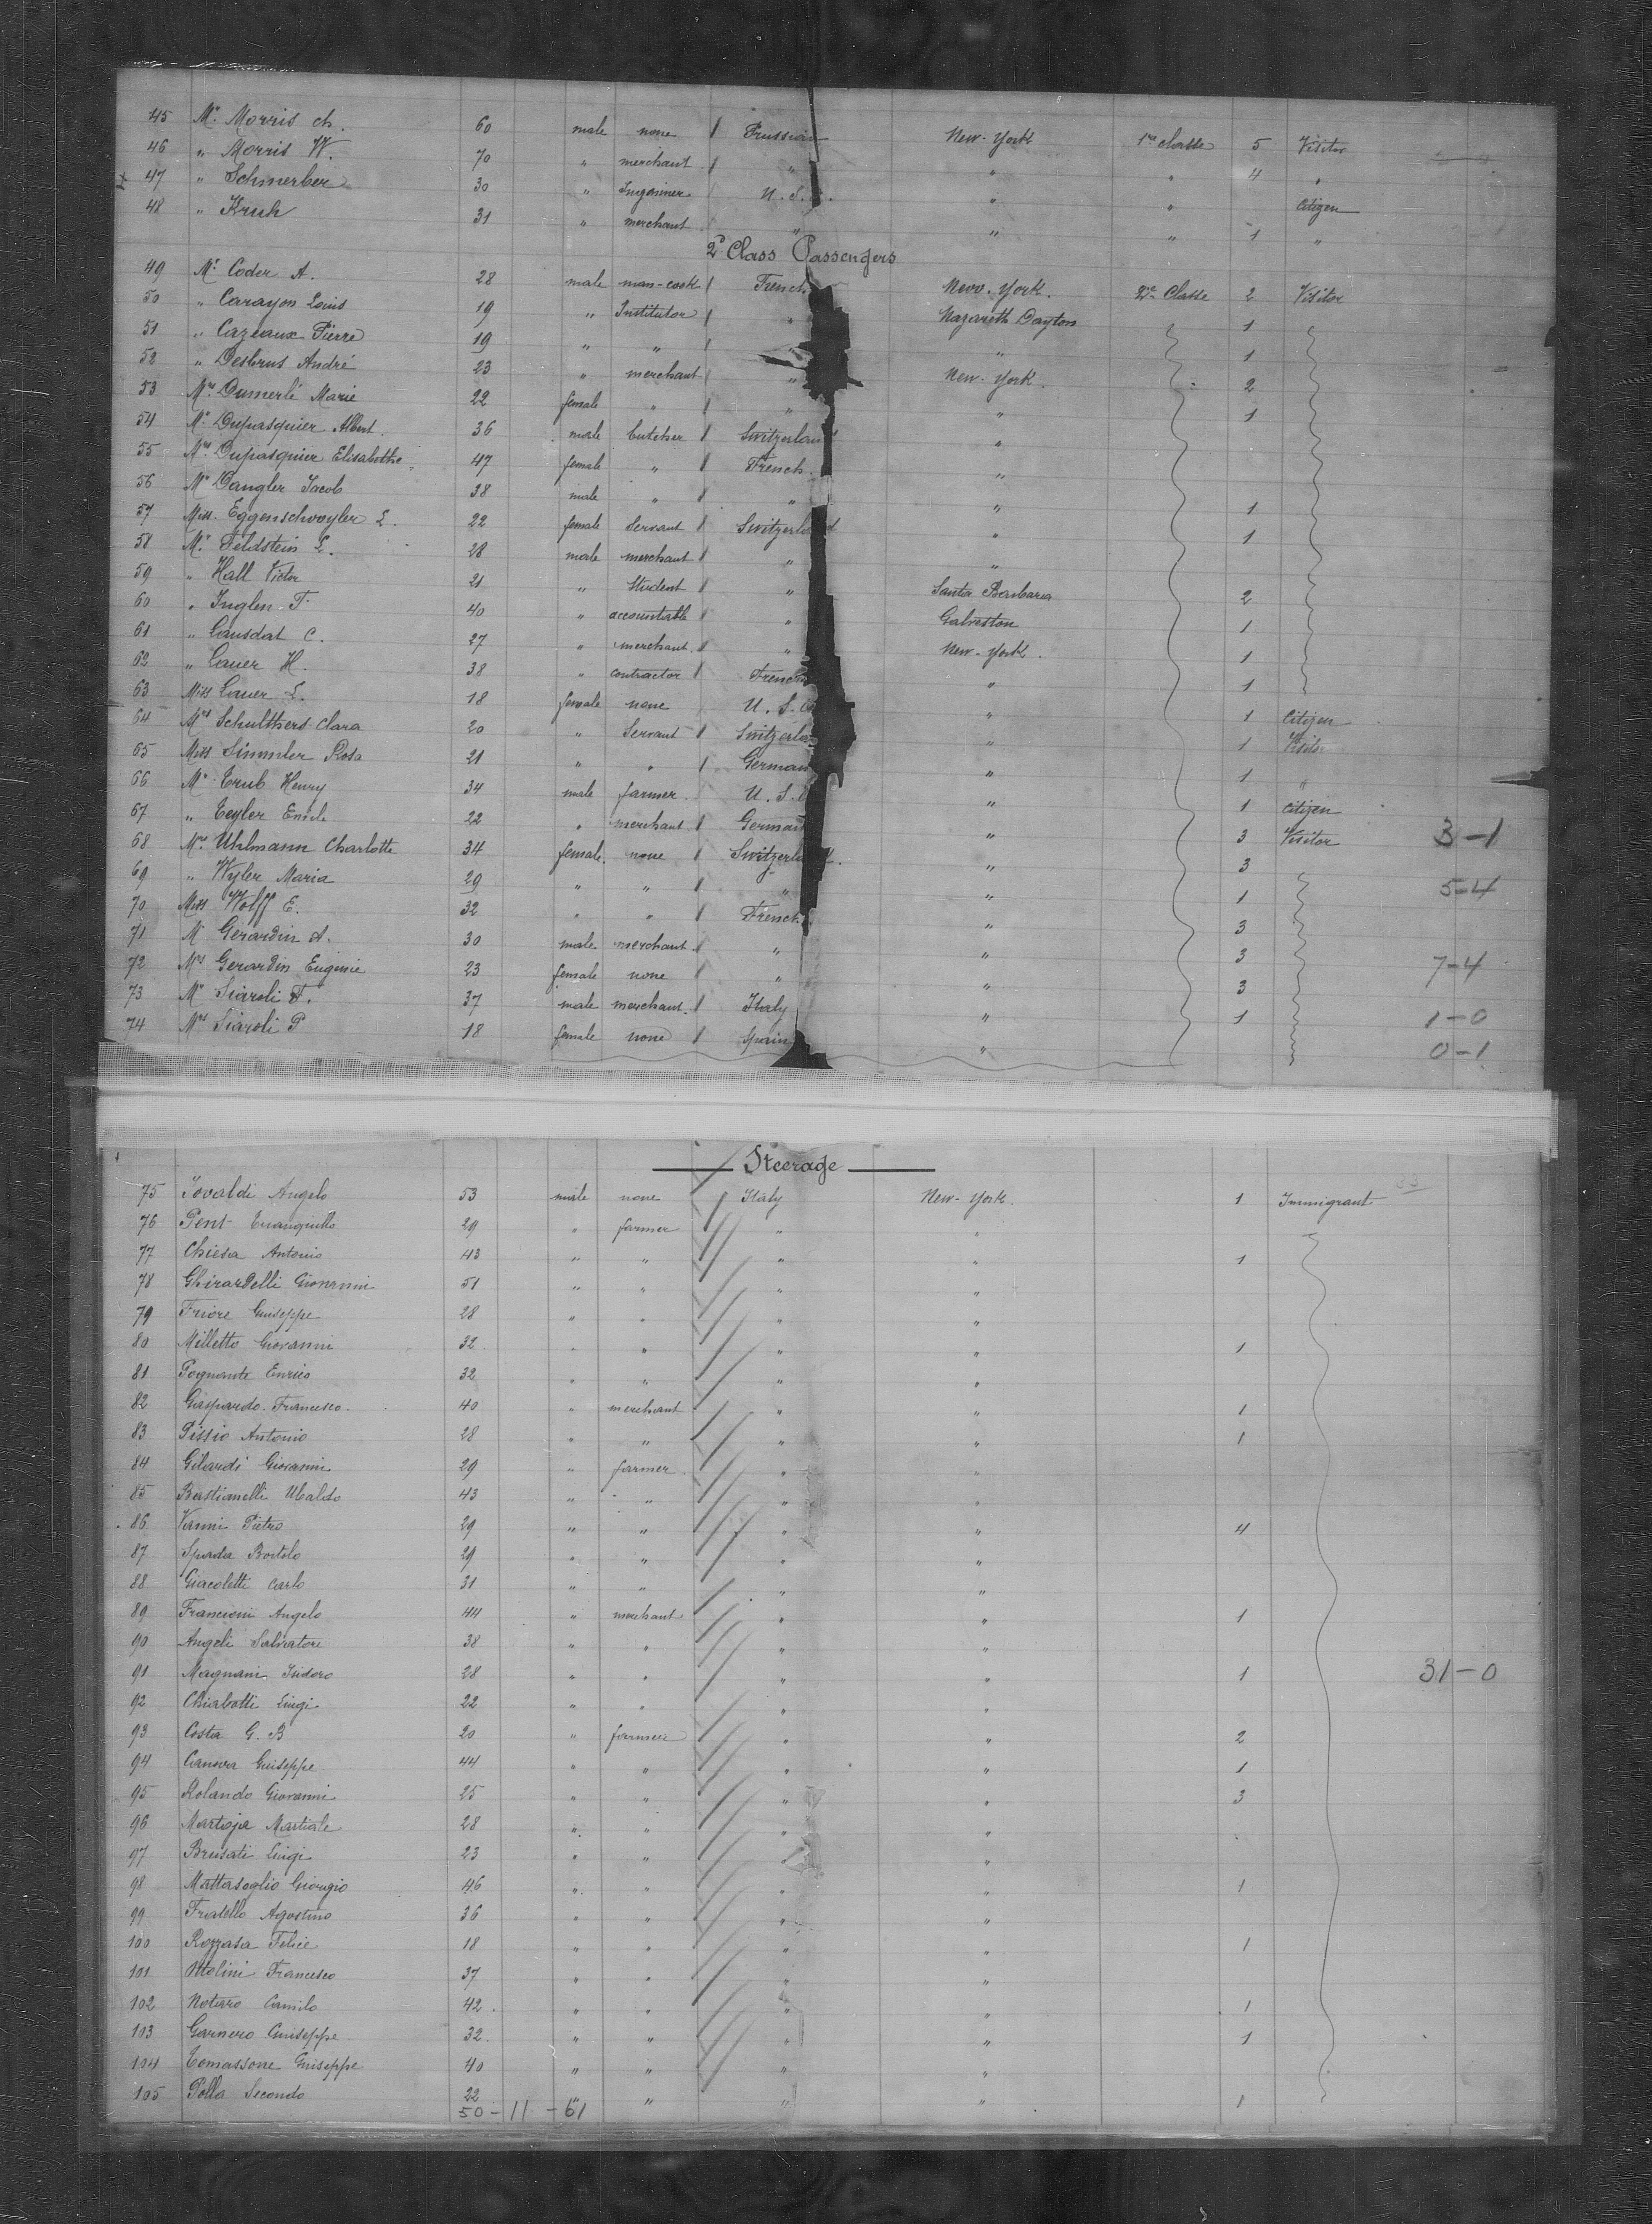 45 Mr Morris ch. 60 male none Prussian New-York 1re classe 5 Visitor
46 " Morris W. 70 " merchant " " " 4 "
47 " Schmerber 30 " Ingenner U.S. " " Citizen
48 " Kruh 31 " merchant " " " 1 "
2d Class Passengers
49 Mr Coder A. 28 male man-cook French New-York. 2e Classe 2 Visitor
50 " Carayon Louis 19 " Institutor " Nazareth Dayton 1
51 " Cazeaux Pierre 19 " " " 1
52 " Desbrus André 23 " merchant " New-York. 2
53 Mrs Dumerlé Marie 22 female " " " 1
54 Mr Dupasquier Albert. 36 male butcher Switzerland "
55 Mrs Dupasquier Elisabethe 47 female " French "
56 Mr Dangler Jacob 38 male " " " 1
57 Miss. Eggenschwyler L. 22 female Servant Switzerland " 1
58 Mr. Feldstein L. 28 male merchant " "
59 " Hall Victor 21 " Student " Santa Barbara 2
60 " Inglen T. 40 " accountable " Galveston 1
61 " Lansdat C. 27 " merchant. " New-York. 1
62 " Lauer H. 38 " contractor French " 1
63 Miss Lauer L. 18 female none U.S. " 1 Citizen
64 Mrs Schulthers Clara 20 " Servant Switzerla " 1 Visitor
65 Miss Simmler Rosa 21 " " German " 1 "
66 Mr Trub Henry 34 male farmer. U.S. " 1 Citizen
67 " Teyler Emile 22 " merchant German " 3 Visitor 3-1
68 Mrs Uhlmann Charlotte 34 female. none Switzerland. " 3
69 " Wyler Maria 29 " " " " 1 5-4
70 Miss Wolff E. 32 " " French " 3
71 Mr Gerardin A. 30 male merchant " " 3
72 Mrs Gerardin Eugenie 23 female none " " 3 7-4
73 Mr Siaroli F. 37 male merchant. Italy " 1 1-0
74 Mrs Siaroli P 18 female none Spain " 0-1
Steerage
75 Tovaldi Angelo 53 male none Italy New-York. 1 Immigrant
76 Pent 29 " farmer " "
77 Chiesa Antonio 43 " " " " 1
78 Ghirardelli Giovanni 51 " " " "
79 Friore Guiseppe 28 " " " "
80 Milletto Giovanni 32. " " " " 1
81 Pognante Enrico 32 " " " "
82 Gaspardo. Francesco. 40 " merchant " " 1
83 Pissio Antonio 28 " " " " 1
84 Gilardi Giovanni 29 " farmer " "
85 Bastianelli Ubaldo 43 " " " "
86 Vanni Pietro 29 " " " " 4
87 Spada Bortolo 29 " " " "
88 Giacoletti Carlo 31 " " " "
89 Francioni Angelo 44 " merchant " " 1
90 Angeli Salvatore 38 " " " "
91 Magnani Isidoro 28 " " " " 1 31-0
92 Chiabotti Luigi 22 " " " "
93 Costa G. B 20 " farmer " " 2
94 Canova Guiseppe 44 " " " " 1
95 Rolando Giovanni 25 " " " " 3
96 Martoja Martiale 28 " " " "
97 Brusati Luigi 23 " " " "
98 Mattasoglio Giorgio 46 " " " " 1
99 Fratello Agostino 36 " " " "
100 Rozzasa Felice 18 " " " " 1
101 Molini Francesco 37 " " " "
102 Notaro Camilo 42. " " " " 1
103 Garnero Guiseppe 32. " " " " 1
104 Tomassone Guiseppe 40 " " " "
105 Polla Secondo 22 " " " " 1
50-11-61